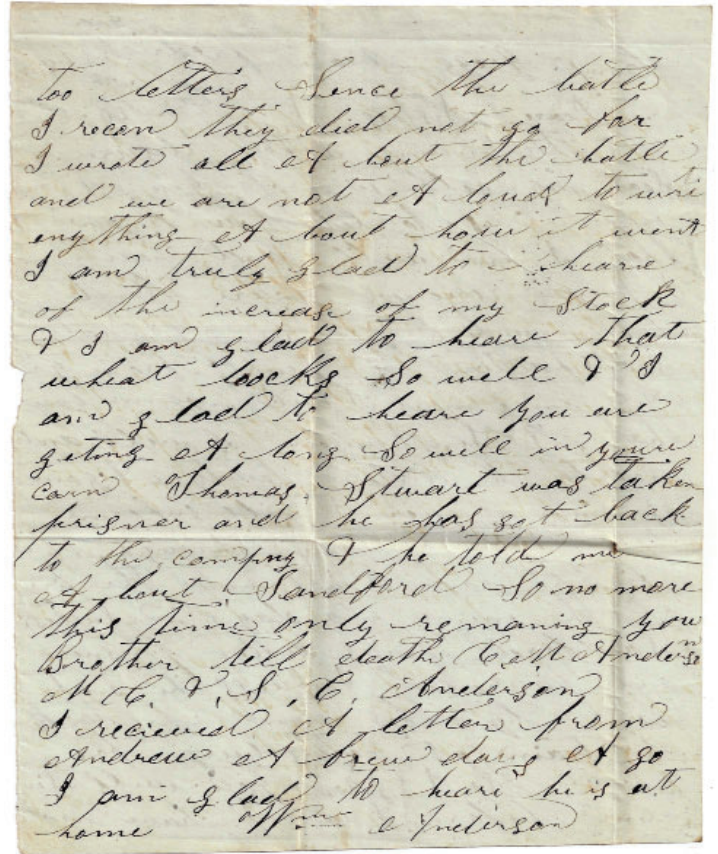 too letters Sence the batle
I recon they did not go far
I wrote all A bout the batle
and we are not A loud to wri
enything A bout how it went
I am truly glad to heare
of the increase of my Stock
& I am glad to heare that
wheat loocks So well & I
am glad to heare you are
geting A long So well in youre
corn Thomas Stuart was taken
prisner and he has got back
to the compny & he told me
A bout Sandford So no more
this time only remaning you
Brother till death C. M Anderson
M C. & S. C. Anderson
I recieved A letter from
Andrew A frew days A go
I am glad to heare he is at
home Wm Anderson